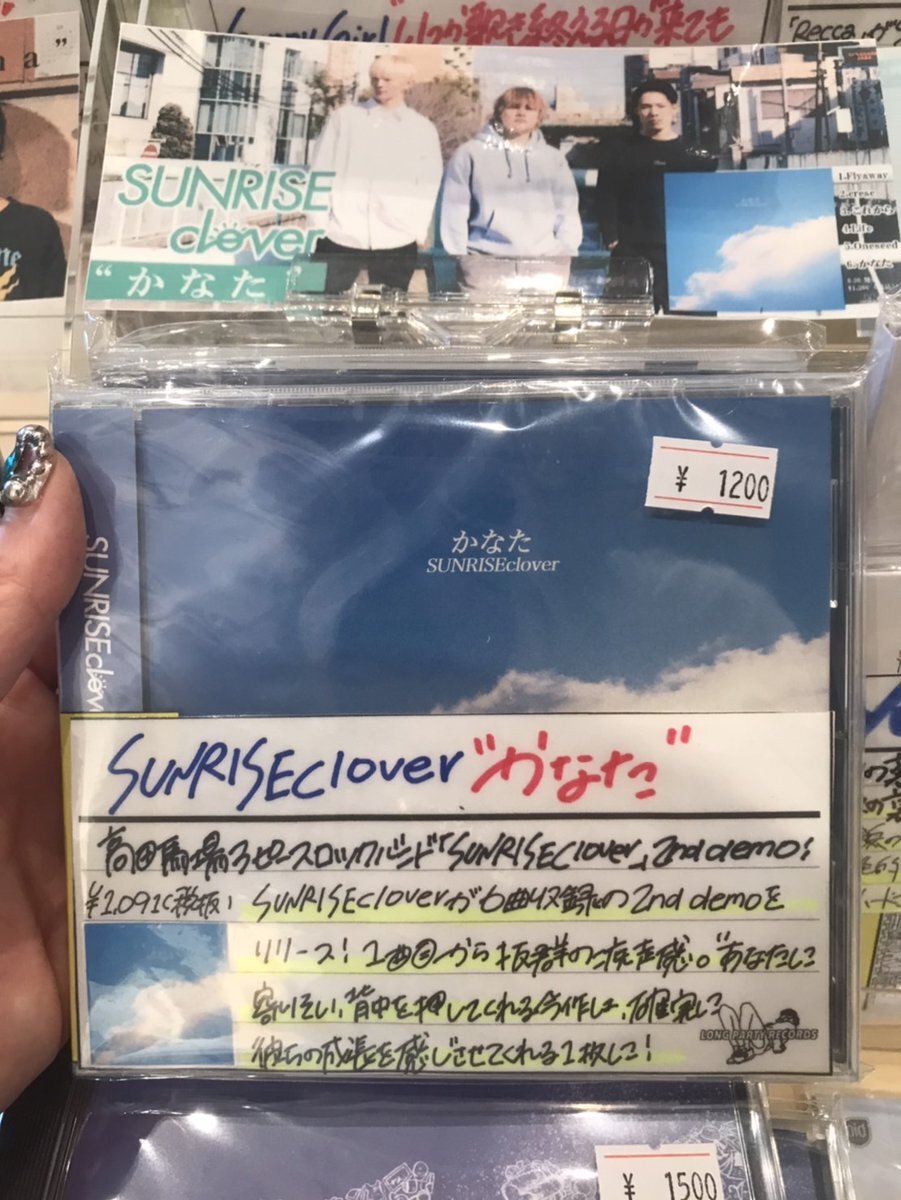 "いつか觀を終える日が来ても
「Recca
a"
SUNRISE
clover
"かなた"
1.Flyaway
2.cresc
3.これから
4.Life
5.Oneseed
6.かなた
¥ 1200
かなた
SUNRISEclover
SUNRISEclov
SUNRISEclover "かなた"
高田馬場3ピースロックバンド「SUNRISEclover」2nd demo!
¥1,091(税抜) SUNRISEcloverが6曲収録の2nd demoを
リリース!1曲目から抜群の疾走感。"あなたに
寄りそい、背中を押してくれる今作は、確実に
彼らの成長を感じさせてくれる1枚に!
LONG PARTY RECORDS
¥ 1500